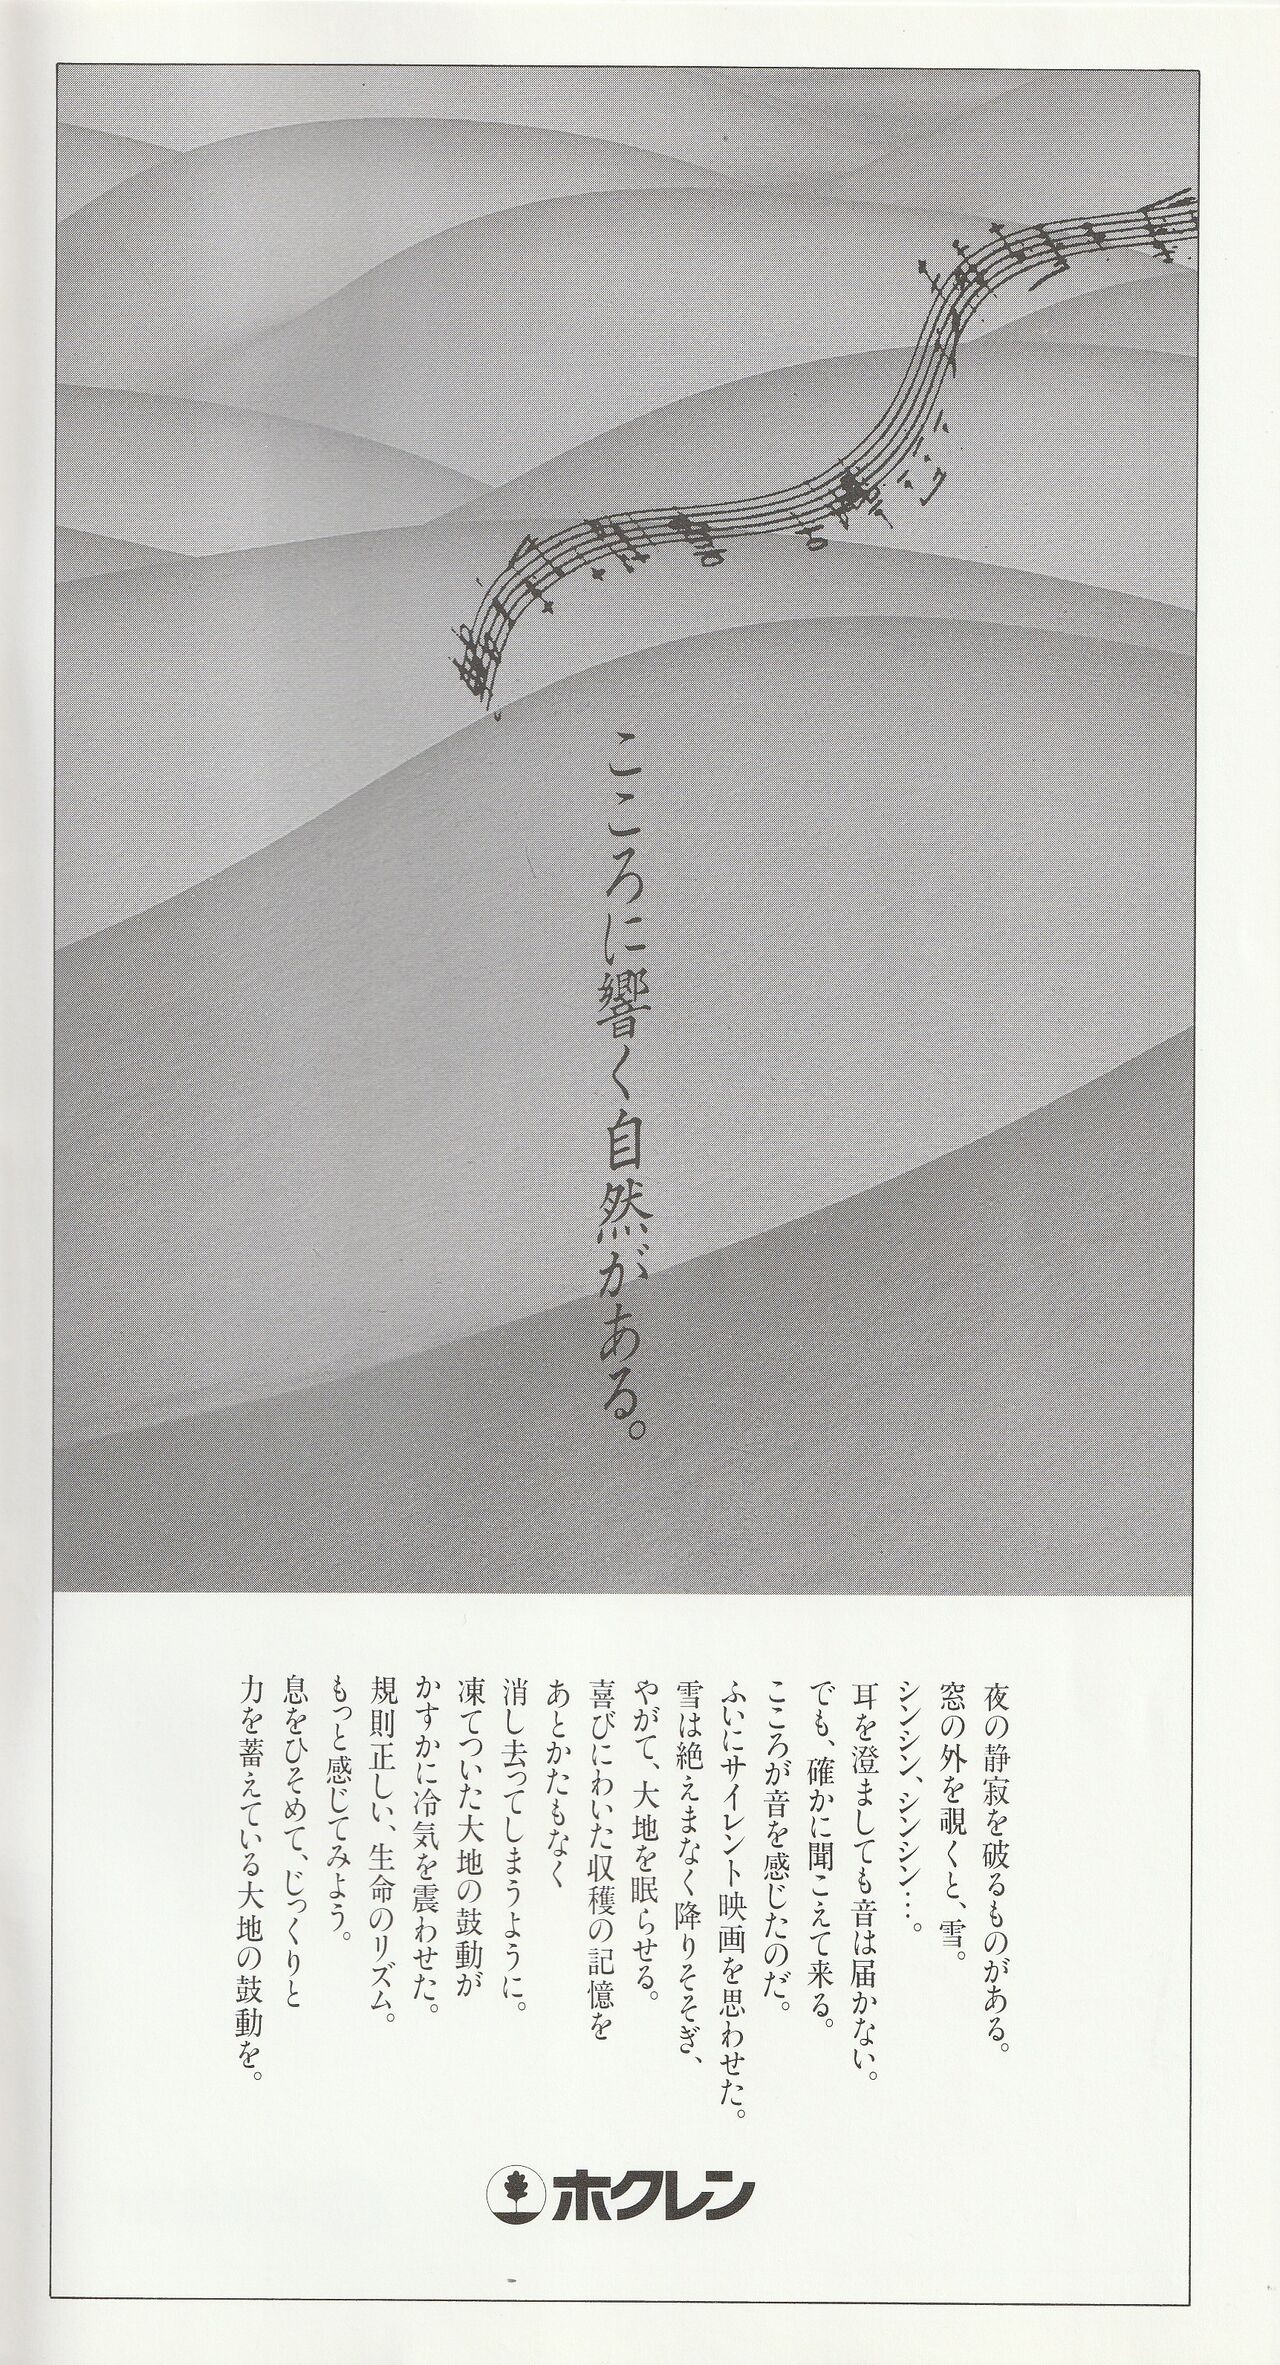 こころに響く自然がある。
夜の静寂を破るものがある。
窓の外を覗くと、雪。
シンシン、シンシン…。
耳を澄ましても音は届かない。
でも、確かに聞こえて来る。
こころが音を感じたのだ。
ふいにサイレント映画を思わせた。
雪は絶えまなく降りそそぎ、
やがて、大地を眠らせる。
喜びにわいた収穫の記憶を
あとかたもなく
消し去ってしまうように。
凍てついた大地の鼓動が
かすかに冷気を震わせた。
規則正しい、生命のリズム。
もっと感じてみよう。
息をひそめて、じっくりと
力を蓄えている大地の鼓動を。
ホクレン